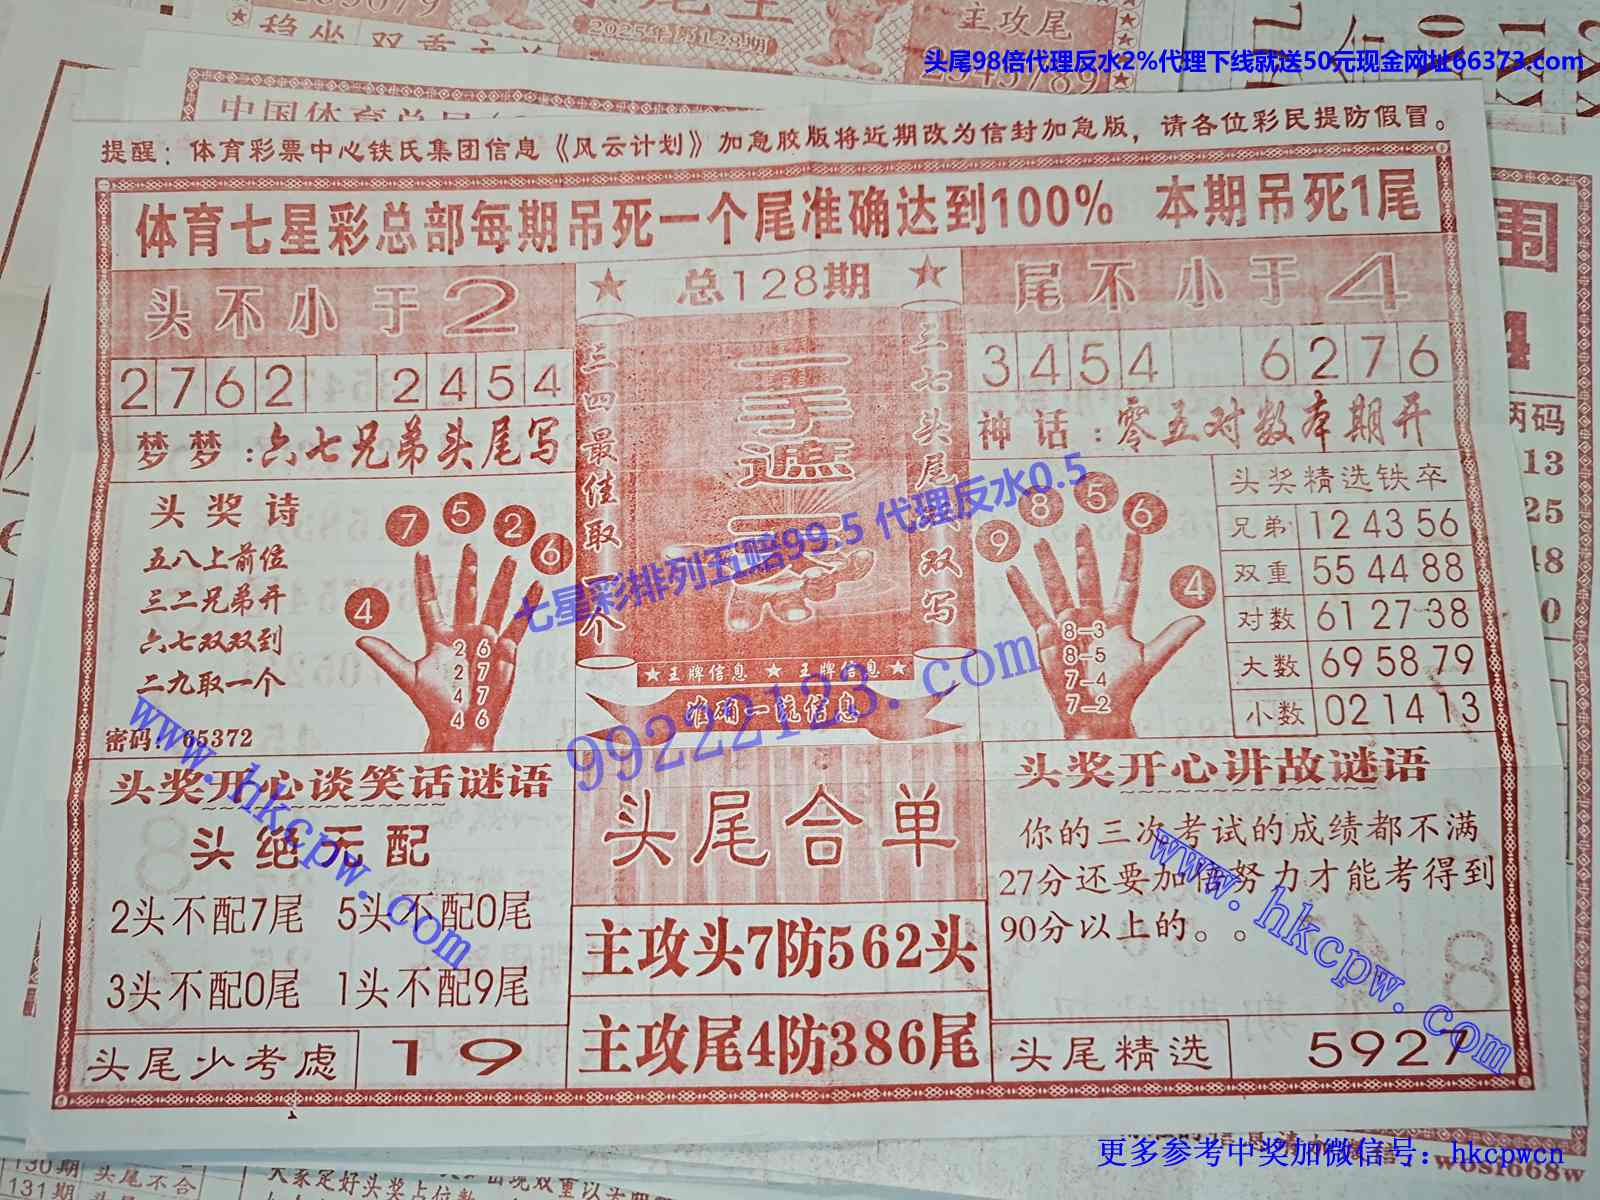 主攻尾
2025年第128期
2345789
头尾98倍代理反水2%代理下线就送50元现金网址66373.com
提醒：体育彩票中心铁氏集团信息《风云计划》加急胶版将近期改为信封加急版，请各位彩民提防假冒。
体育七星彩总部每期吊死一个尾准确达到100% 本期吊死1尾
头不小于2
★ 总128期 ★
尾不小于4
2762 2454
3454 6276
梦梦：六七兄弟头尾写
神话：零五对数本期开
三四最佳取一个
一手遮天
三七头尾双写
头奖诗
五八上前位
三二兄弟开
六七双双到
二九取一个
密码：65372
4 7 5 2 6
2 6
2 7
4 7
4 6
9 8 5 6 4
8-3
8-5
7-4
7-2
头奖精选铁卒
兄弟 12 43 56
双重 55 44 88
对数 61 27 38
大数 69 58 79
小数 02 14 13
七星彩排列五赔99.5 代理反水0.5
★王牌信息 ★ 王牌信息★
准确一流信息
99222123.com
www.hkcpw.com
头奖开心谈笑话谜语
头绝无配
2头不配7尾 5头不配0尾
3头不配0尾 1头不配9尾
头尾少考虑 19
头尾合单
主攻头7防562头
主攻尾4防386尾
头奖开心讲故谜语
你的三次考试的成绩都不满
27分还要加倍努力才能考得到
90分以上的。。
www.hkcpw.com
头尾精选 5927
更多参考中奖加微信号：hkcpwcn
130期 头尾不合
131期